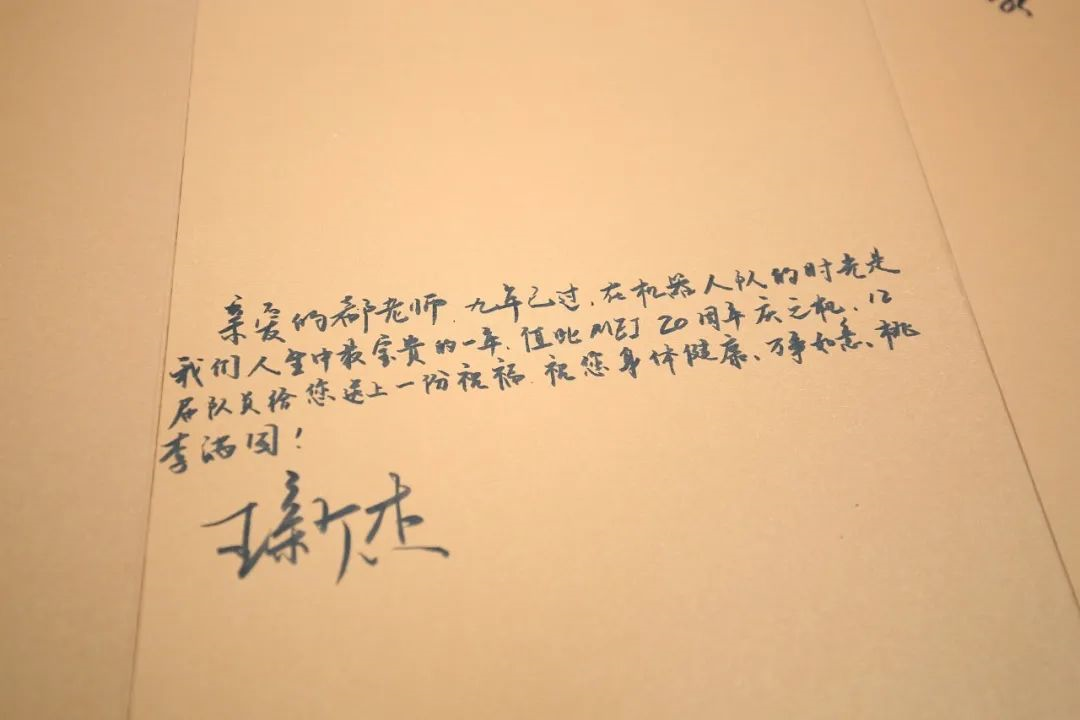 亲爱的都老师，九年已过，在机器人队的时光是
我们人生中最宝贵的一年，值此MEJ 20周年庆之机，12
届队员给您送上一份祝福，祝您身体健康、万事如意、桃
李满园！
王新杰